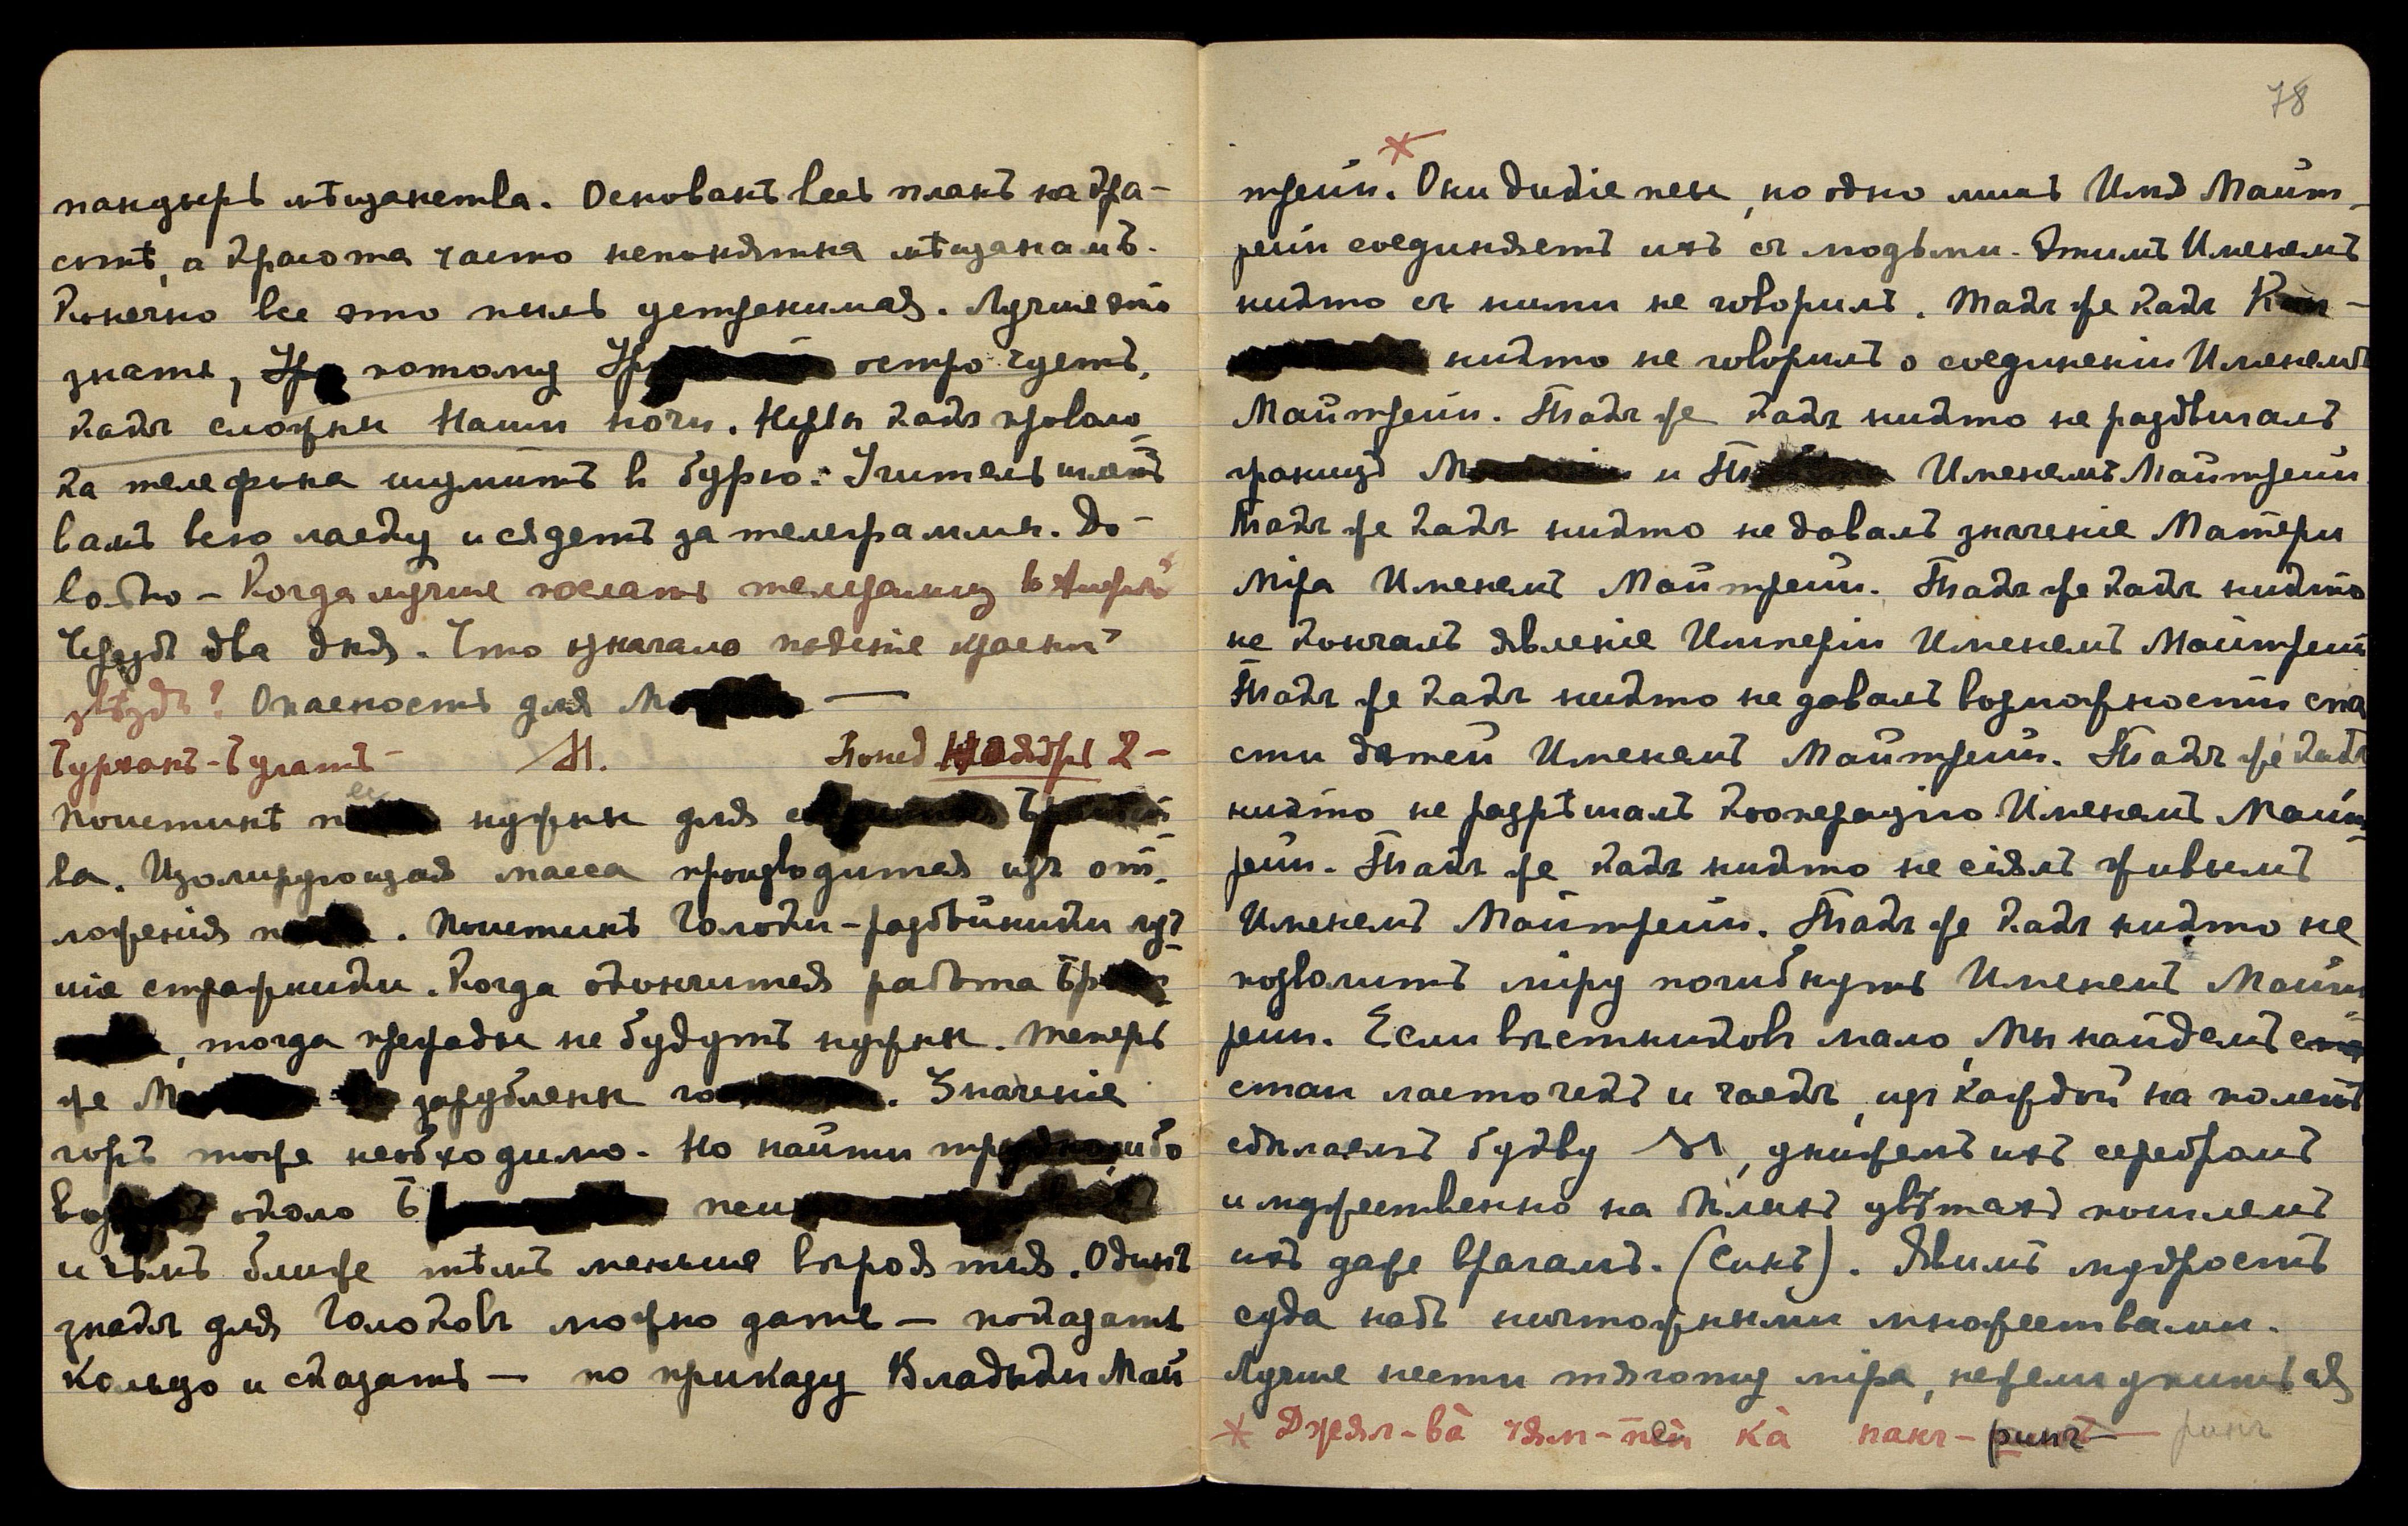 панцырь мѣщанства. Основанъ весь планъ на кра-
сотѣ, а красота часто непонятна мѣщанамъ.
Конечно все это пыль устранимая. Лучше это
знать, Ур потому Ур остро чуетъ,
какъ сложны Наши ночи. Нервы какъ проволо
ка телефона шумитъ в бурю. Учитель шлетъ
вамъ всю ласку и сядетъ за телеграммы. До-
вольно – Когда лучше послать телеграмму в Америку
Черезъ два дня. Что означало падение красныхъ
звѣздъ? Опасность для М —
Турханъ-Тулатъ – М. Понед Ноябрь 2 –
Поистинѣ п нужны для с Б
ва. Изолирующая масса производится изъ от-
ложенія п . Поистинѣ Голоки-разбойники луч
шіе стражники. Когда окончится работа Бр
, тогда преграды не будутъ нужны. Теперь
же М зарублены го . Значеніе
горъ тоже необходимо. Но найти тр ибо
воз около Б пещ
и чѣмъ ближе тѣмъ меньше вѣроятія. Одинъ
знакъ для Голоковъ можно дать — показать
Кольцо и сказать — по приказу Владыки Май
78
трейи. Они дикіе псы, но одно лишь Имя Майт-
рейи соединяетъ ихъ съ людьми. Этимъ Именемъ
никто съ ними не говорилъ. Такъ же какъ К
никто не говорилъ о соединеніи Именемъ
Майтрейи. Такъ же какъ никто не раздвигалъ
границъ М и Т Именемъ Майтрейи
Такъ же какъ никто не давалъ значеніе Матери
Міра Именемъ Майтрейи. Такъ же какъ никто
не кончалъ явленіе Имперіи Именемъ Майтрейи
Такъ же какъ никто не давалъ возможности спа
сти дѣтей Именемъ Майтрейи. Такъ же какъ
никто не разрѣшалъ Кооперацію Именемъ Майт
рейи. Такъ же какъ никто не сіялъ живымъ
Именемъ Майтрейи. Такъ же какъ никто не
позволитъ міру погибнуть Именемъ Майт
рейи. Если вѣстниковъ мало, Мы найдемъ
стаи ласточекъ и чаекъ, изъ каждой на полетѣ
сдѣлаемъ букву М, унижемъ ихъ серебромъ
и мужественно на бѣлыхъ цвѣтахъ пошлемъ
ихъ даже врагамъ. (Сихъ). Явимъ мудрость
суда надъ ничтожными множествами.
Лучше нести тяготу міра, нежели унитьзя
* Джял-ва чям-пей ка панг-ринг — ринг